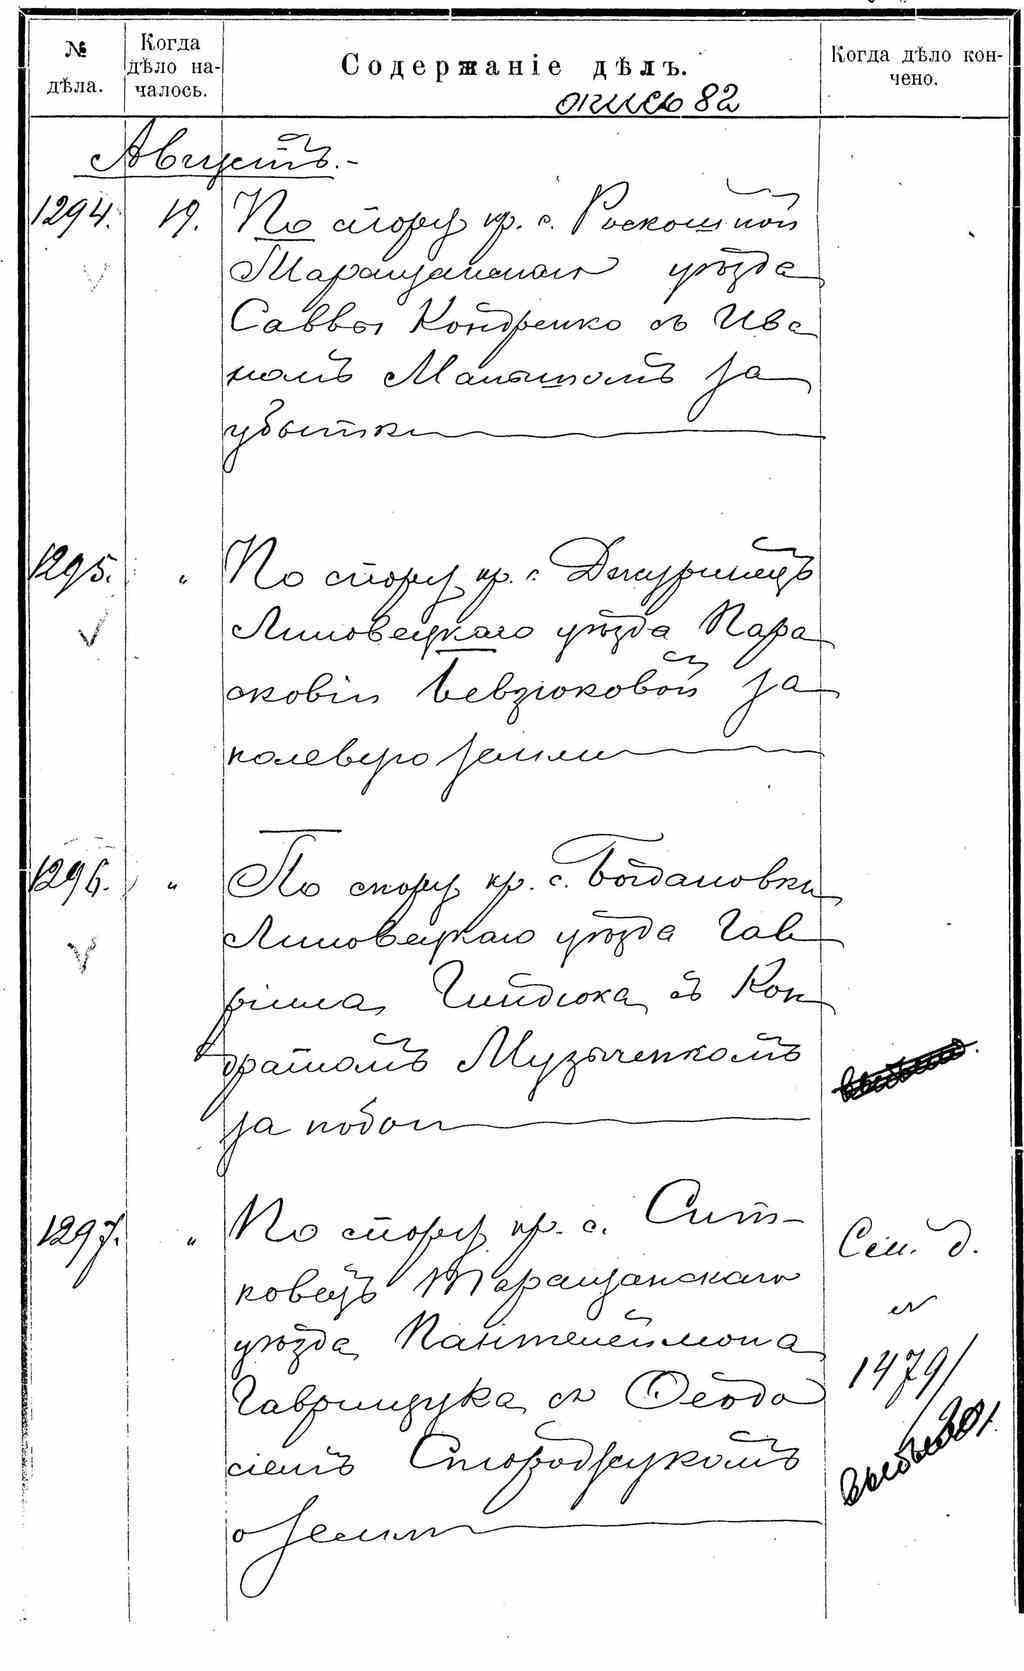 № дѣла.
Когда дѣло на-
чалось.
Содержаніе дѣлъ.
Когда дѣло кон-
чено.
опись 82
Августъ.-
1294. 19. По спору кр. с. Роскошной
Таращанскаго уѣзда
Саввы Кондренко съ Ива
номъ
за
убытки
1295. " По спору кр. с. Джуринецъ
Липовецкаго уѣзда Пара
сковіи Бевзюковой за
полевую землю
1296. " По спору кр. с. Богдановки
Липовецкаго уѣзда Гав
ріила Гиндюка съ Кон
дратомъ Музыченкомъ
за побои
1297. " По спору кр. с. Сит-
ковецъ Таращанскаго
уѣзда Пантелеймона
Гаврищука съ Ѳеодо
сіемъ
о землѣ
См. д.
№
1479/